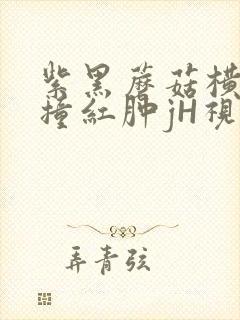 紫黑蘑菇横
撞紅肿jH視
弄青弦